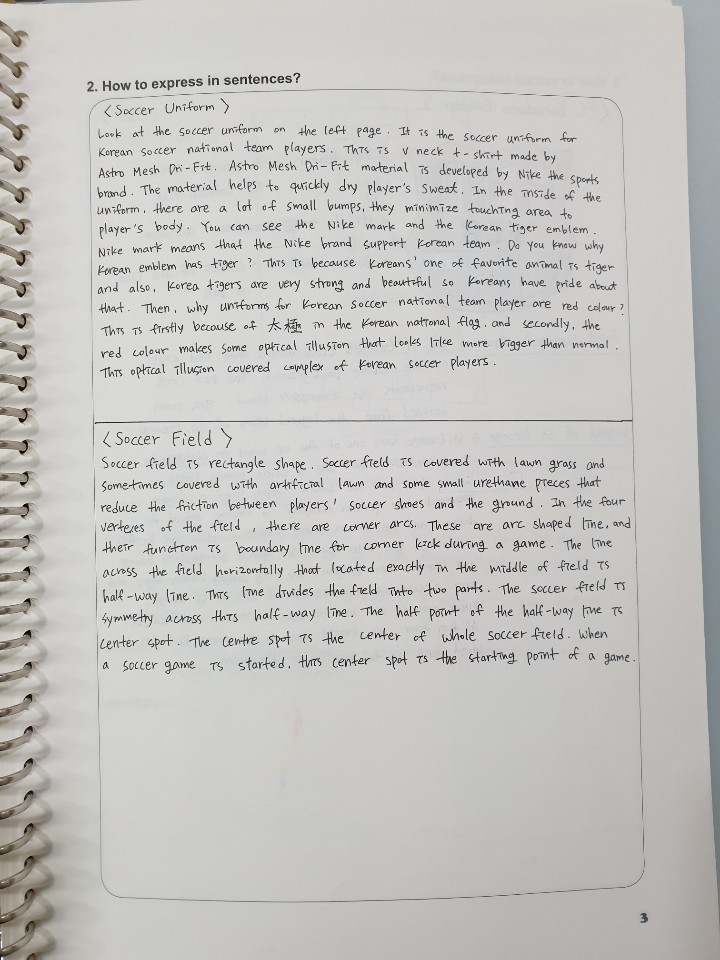 2. How to express in sentences?
<Soccer Uniform>
Look at the soccer uniform on the left page. It is the soccer uniform for
Korean soccer national team players. This is V neck t-shirt made by
Astro Mesh Dri-Fit. Astro Mesh Dri-Fit material is developed by Nike the sports
brand. The material helps to quickly dry player's sweat. In the inside of the
uniform, there are a lot of small bumps, they minimize touching area to
player's body. You can see the Nike mark and the Korean tiger emblem.
Nike mark means that the Nike brand support Korean team. Do you know why
Korean emblem has tiger? This is because Koreans' one of favorite animal is tiger
and also, Korea tigers are very strong and beautiful so Koreans have pride about
that. Then, why uniforms for Korean soccer national team player are red colour?
This is firstly because of 太極 in the Korean national flag, and secondly, the
red colour makes some optical illusion that looks like more bigger than normal.
This optical illusion covered complex of Korean soccer players.
<Soccer Field>
Soccer field is rectangle shape. Soccer field is covered with lawn grass and
sometimes covered with artificial lawn and some small urethane pieces that
reduce the friction between players' soccer shoes and the ground. In the four
vertexes of the field, there are corner arcs. These are arc shaped line, and
their function is boundary line for corner kick during a game. The line
across the field horizontally that located exactly in the middle of field is
half-way line. This line divides the field into two parts. The soccer field is
symmetry across this half-way line. The half point of the half-way line is
center spot. The centre spot is the center of whole soccer field. When
a soccer game is started, this center spot is the starting point of a game.
3